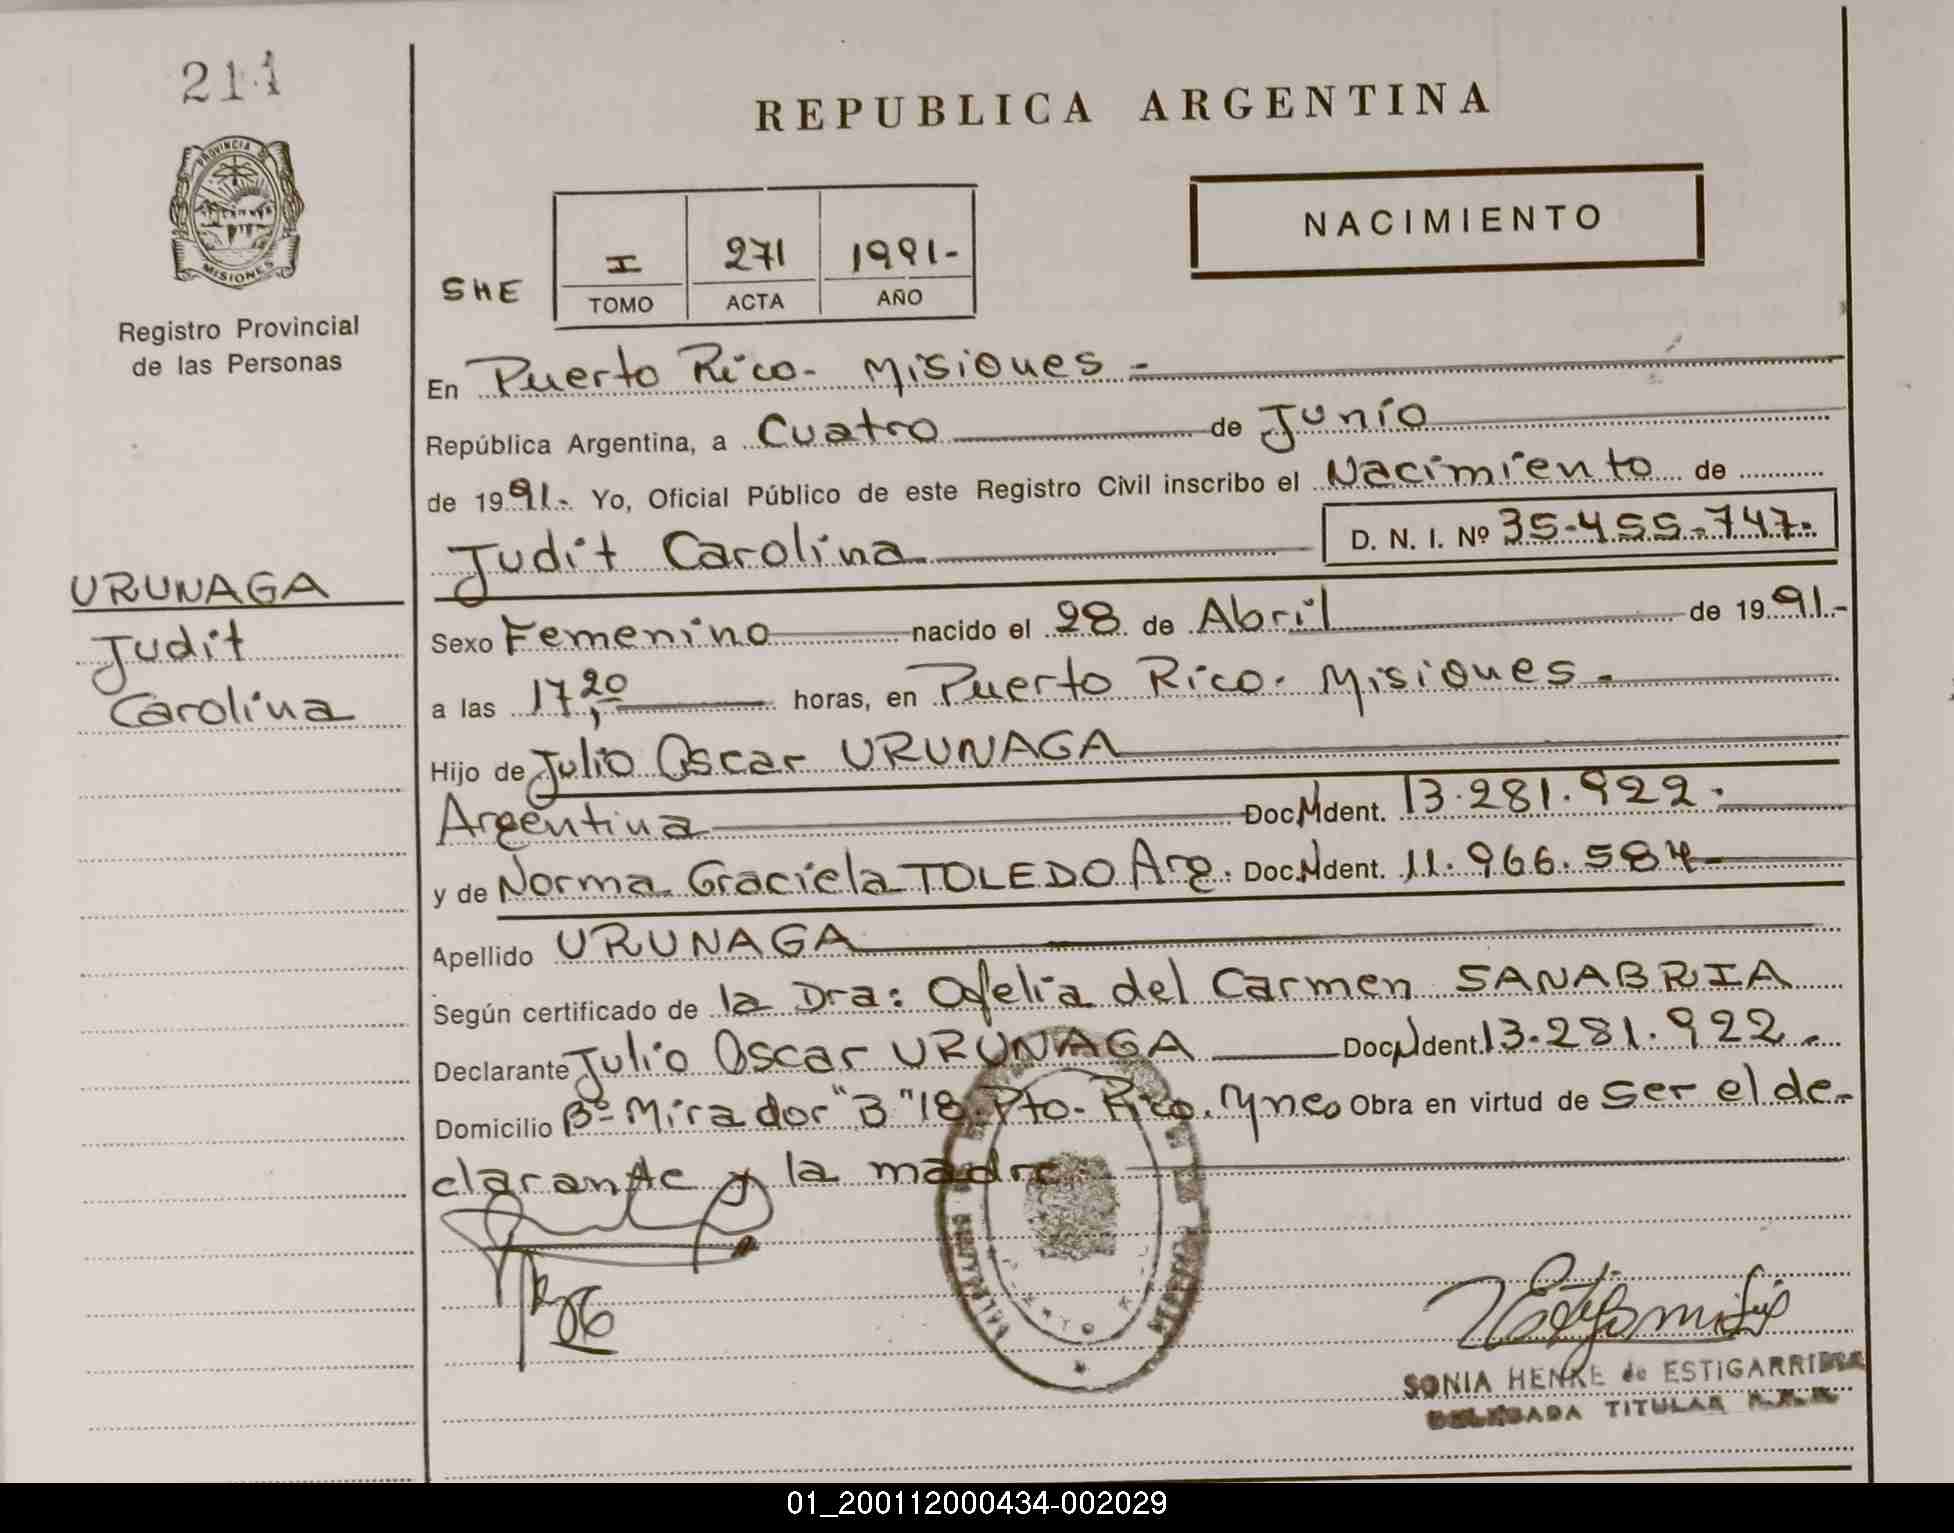 211
PROVINCIA DE
MISIONES
Registro Provincial
de las Personas
REPUBLICA ARGENTINA
NACIMIENTO
SHE
I 271 1991-
TOMO ACTA AÑO
En Puerto Rico- Misiones -
República Argentina, a Cuatro de Junio
de 1991.- Yo, Oficial Público de este Registro Civil inscribo el Nacimiento de
Judit Carolina D. N. I. Nº 35-455-747-
URUNAGA
Judit
Carolina
Sexo Femenino nacido el 28 de Abril de 1991.-
a las 17,20 horas, en Puerto Rico. Misiones.-
Hijo de Julio Oscar URUNAGA
Argentina Doc. Ident. 13.281.922.
y de Norma Graciela TOLEDO Arg. Doc. Ident. 11.966.584
Apellido URUNAGA
Según certificado de la Dra: Ofelia del Carmen SANABRIA
Declarante Julio Oscar URUNAGA Doc. Ident. 13.281.922.
Domicilio Bº Mirador "B" 18. Pto. Rico. Mnes Obra en virtud de ser el de-
clarante y la madre
SONIA HENKE de ESTIGARRIBIA
DELEGADA TITULAR
01_200112000434-002029